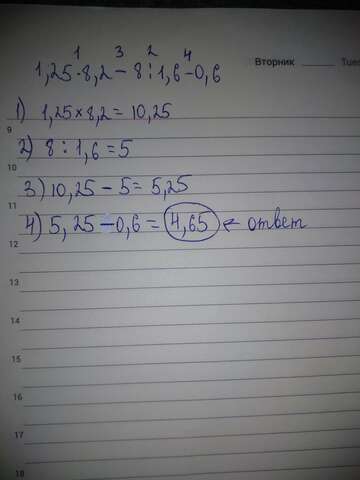 1 3 2 4
1,25·8,2−8:1,6−0,6
Вторник Tues
1) 1,25×8,2=10,25
9
2) 8:1,6=5
10
3) 10,25−5=5,25
11
4) 5,25−0,6=4,65 ← ответ
12
13
14
15
16
17
18